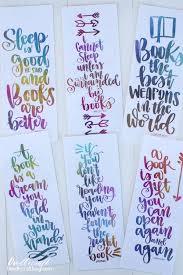 Sleep is
good
he said
and
Books
are
better
I
Cannot
Sleep
unless I am
Surrounded
by books
Books
are
the best
weapons
in the
world
A
book is
a
dream
you
hold
in your
hands
if
you
don't like
reading
you
haven't
found
the right
book
a
book
is a
gift
you
can
open
again
and
again